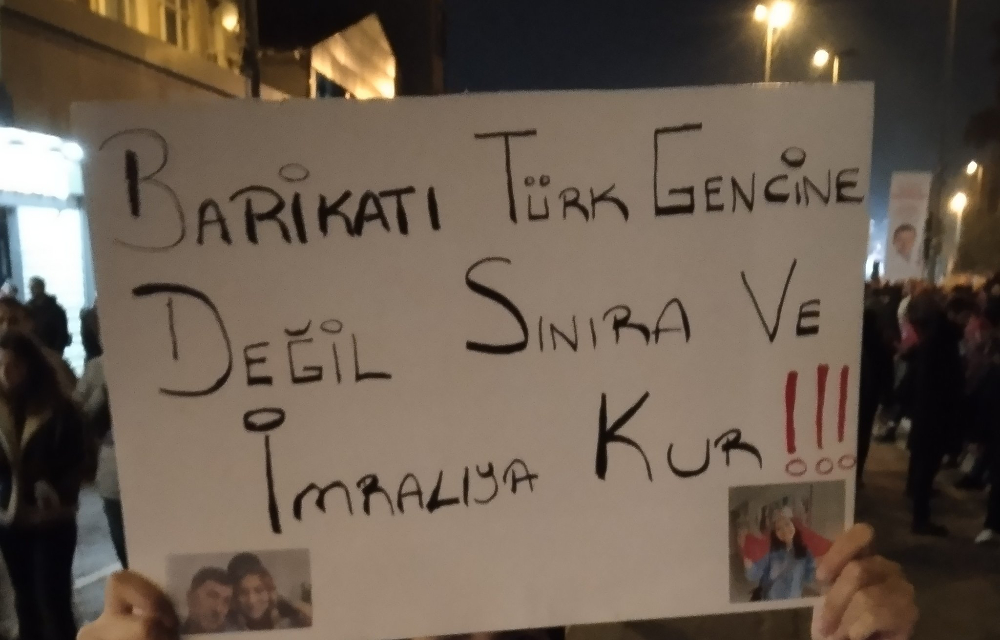 BARİKATI TÜRK GENCİNE
DEĞİL SINIRA VE
İMRALIYA KUR!!!